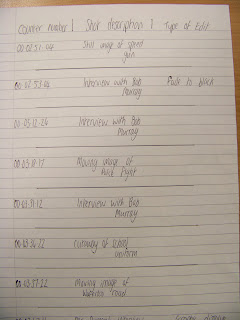 Counter number | Shot description | Type of Edit
00:02:51:04 Still image of speed
gun
00:02:53:02 Interview with Bob Fade to black
Murray
00:03:12:24 Interview with Bob
Murray
00:03:18:17 Moving image of
Fight
00:03:31:12 Interview with Bob
Murray
00:03:34:22 of school
uniform
00:03:37:22 Moving image of
road